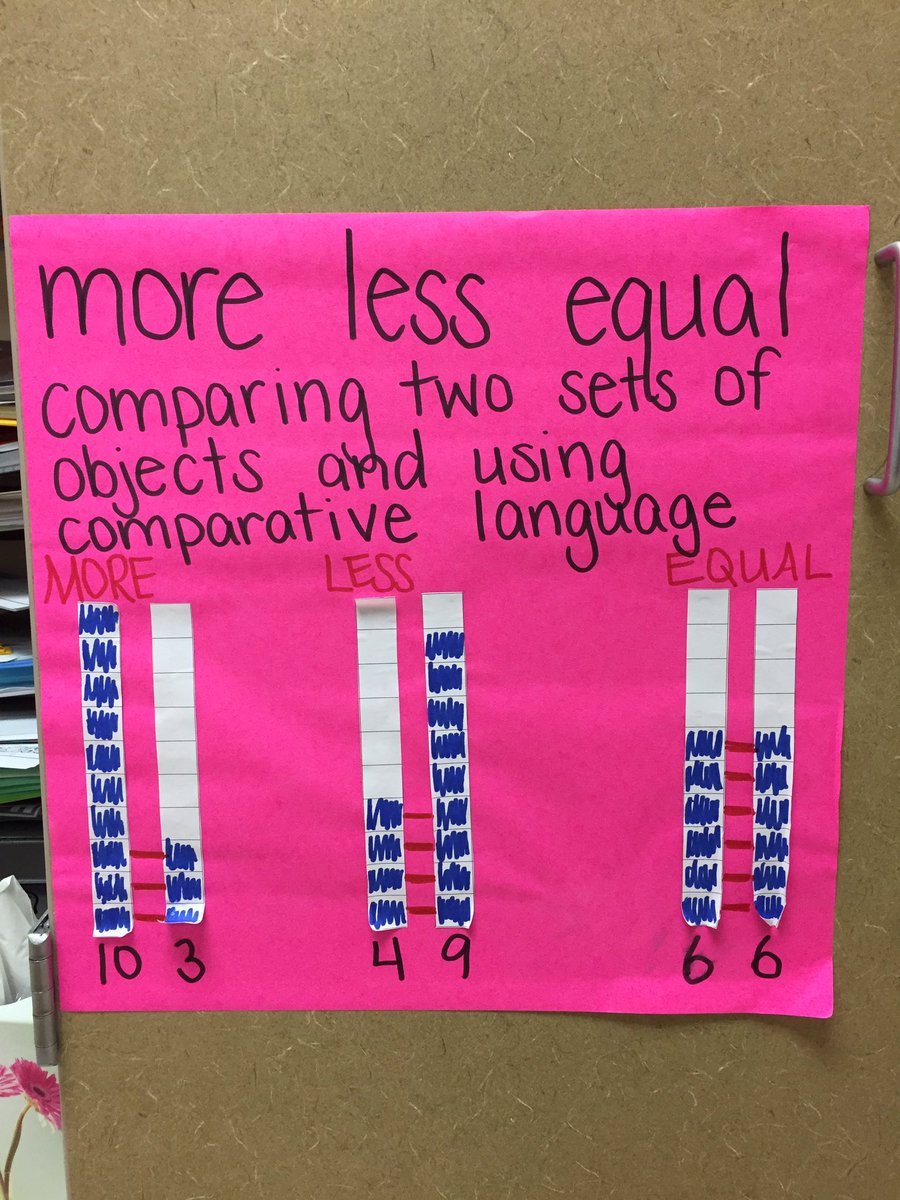 more less equal
comparing two sets of
objects and using
comparative language
MORE LESS EQUAL
10 3 4 9 6 6